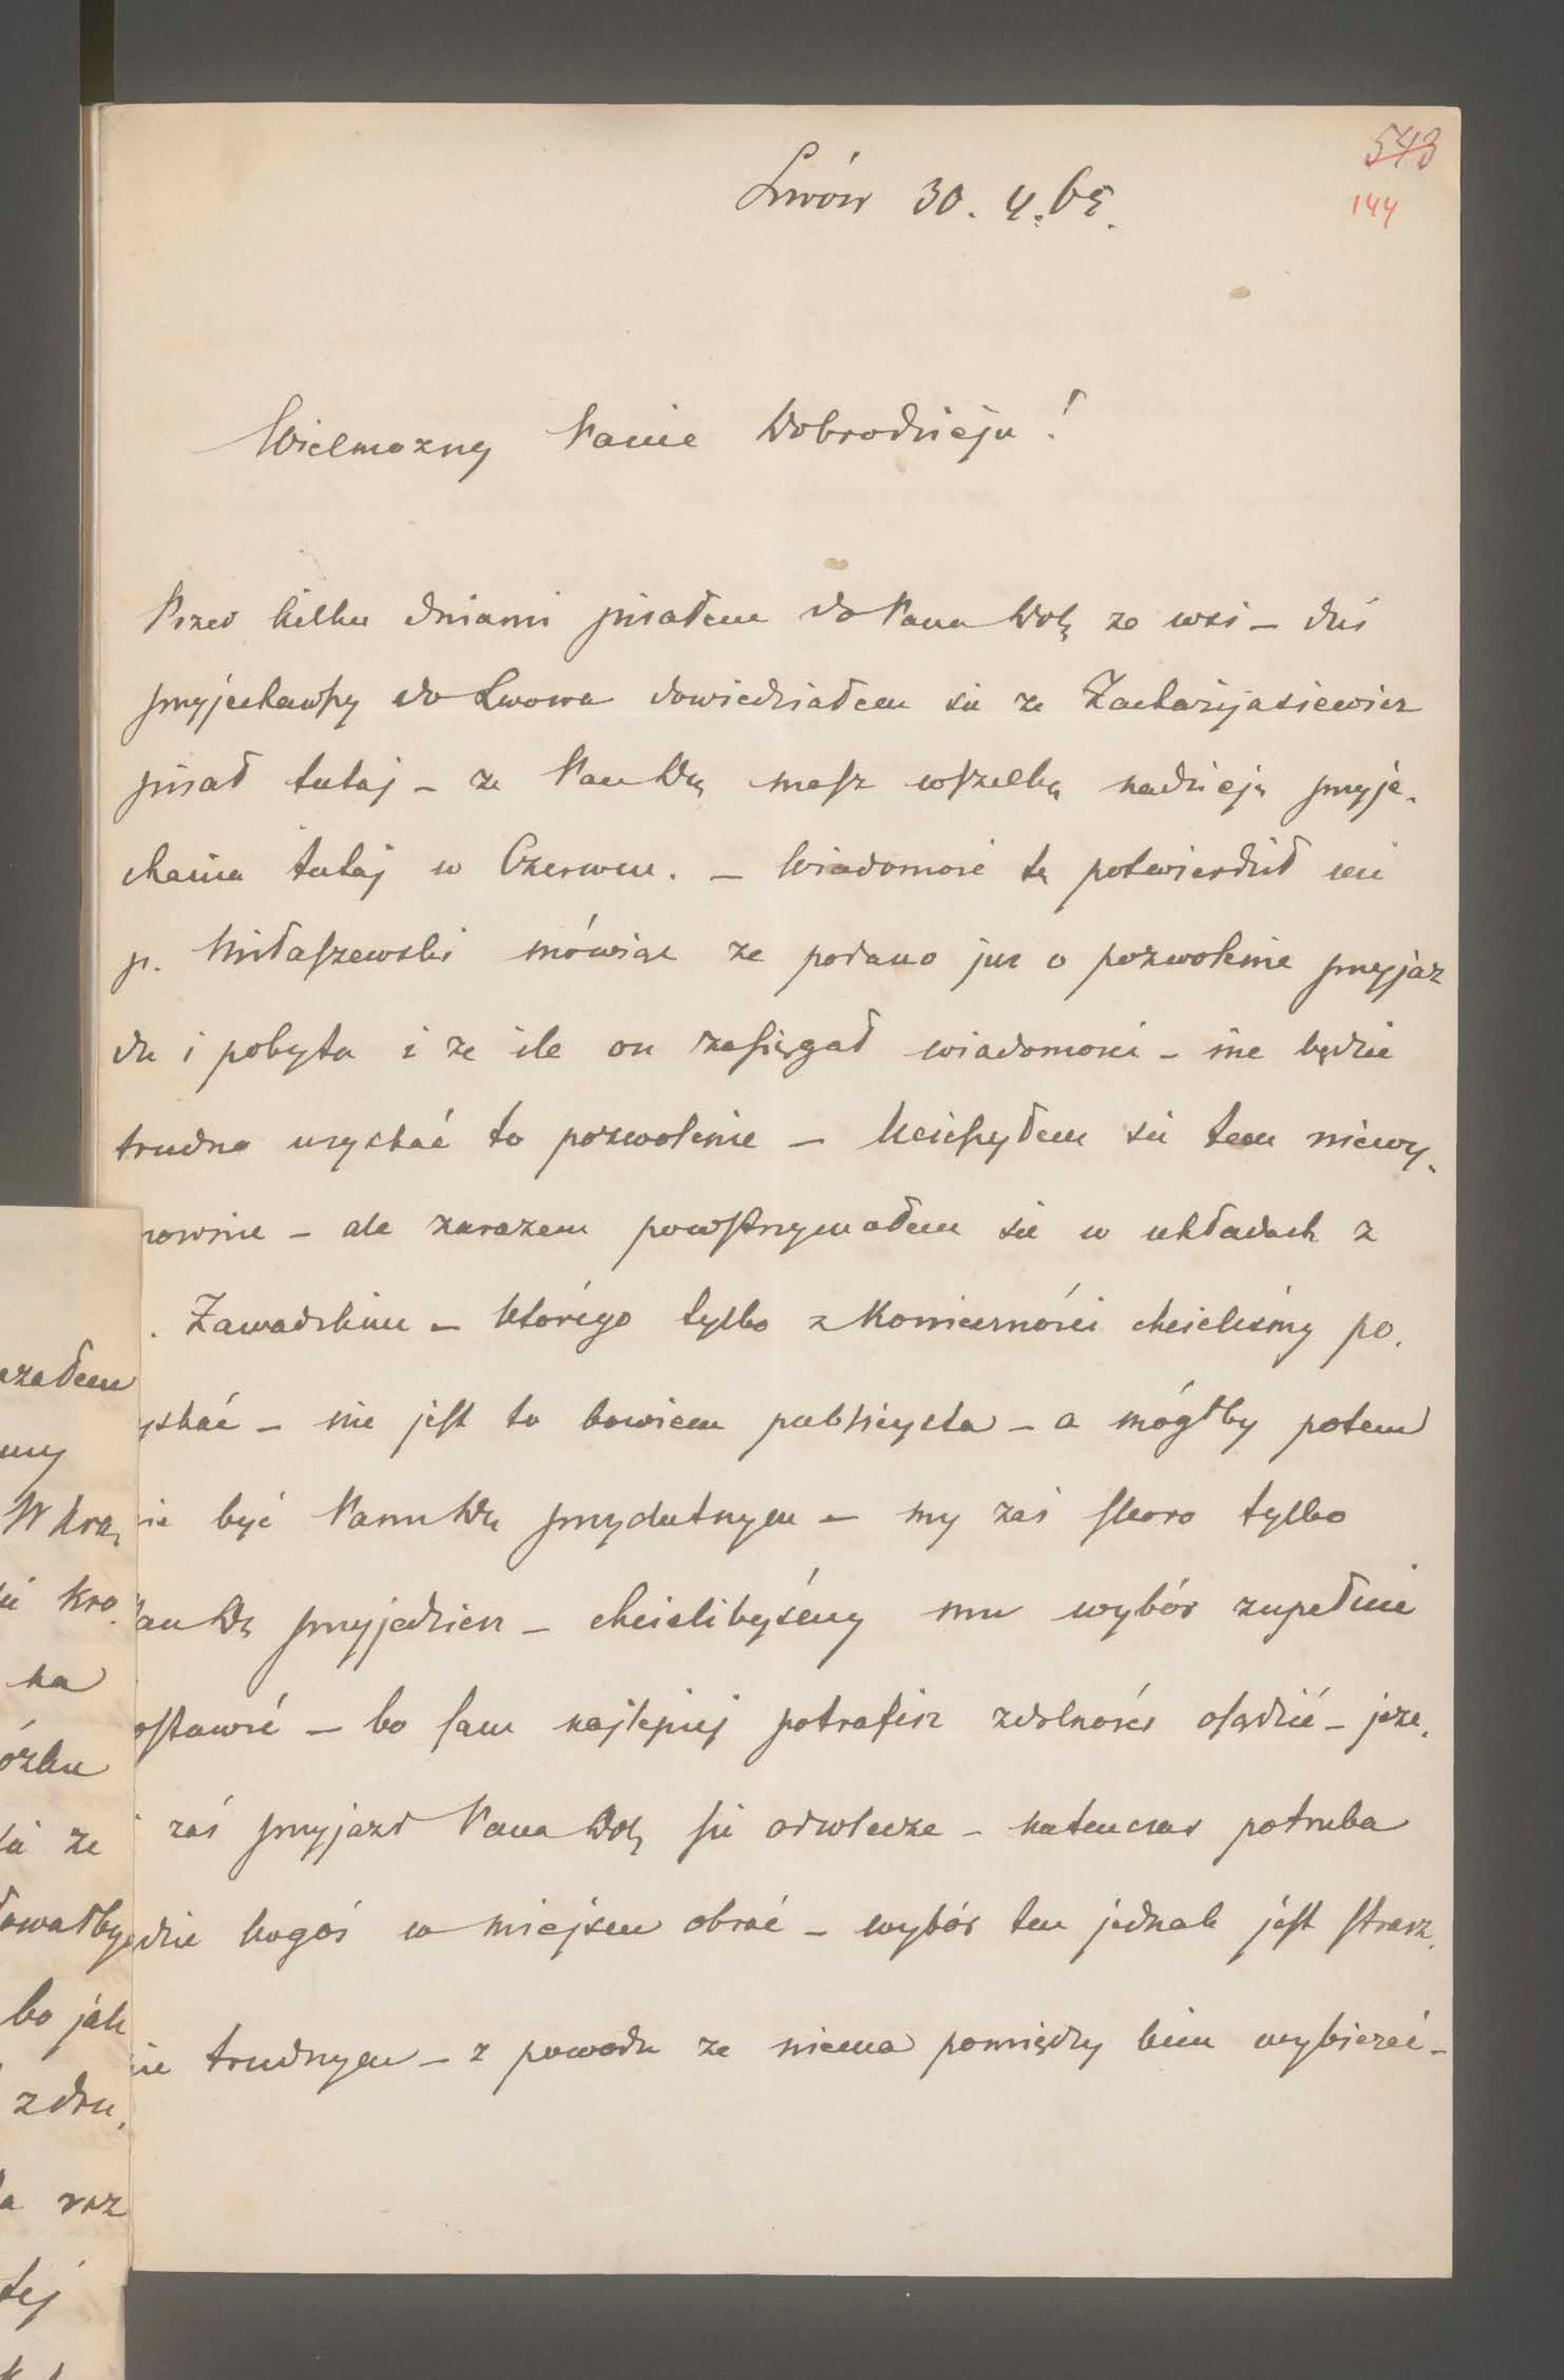 543
144
Lwów 30. 4. 65.
Wielmożny Panie Dobrodzieju!
Przed kilku dniami pisałem do Pana Dob. ze wsi – dziś
przyjechawszy do Lwowa dowiedziałem sie ze Zacharyjasiewicz
pisał tutaj – ze Pan Db. masz wszelką nadzieję przyje-
chania tutaj w Czerwcu. – Wiadomość tę potwierdził mi
p. Miłaszewski mówiąc ze podano juz o pozwolenie przyjaz
du i pobytu i ze ile on zasięgał wiadomości – nie będzie
trudno uzyskać to pozwolenie – Ucieszyłem sie tem niewy-
mownie – ale zarazem powstrzymałem sie w układach z
. Zawadzkim – którégo tylko z Koniecznósci chcieliśmy po-
yskać – nie jest to bowiem publicysta – a mógłby potem
nie być Panu Db. przydatnym – my zaś skoro tylko
Pan Db. przyjedziesz – chcielibyśmy mu wybór zupełnie
ostawić – bo sam najlepiej potrafisz zdolności osądzić – jeze-
i zaś przyjazd Pana Dob. się odwlecze – natenczas potrzeba
dzie kogoś w miejscu obrać – wybór ten jednak jest strasz-
ie trudnym – z powodu ze niema pomiędzy kim wybierać –
azałem
my
W Kra,
Kro.
na
ózku
ze
owałby
bo jak
zdru,
a raz
tej